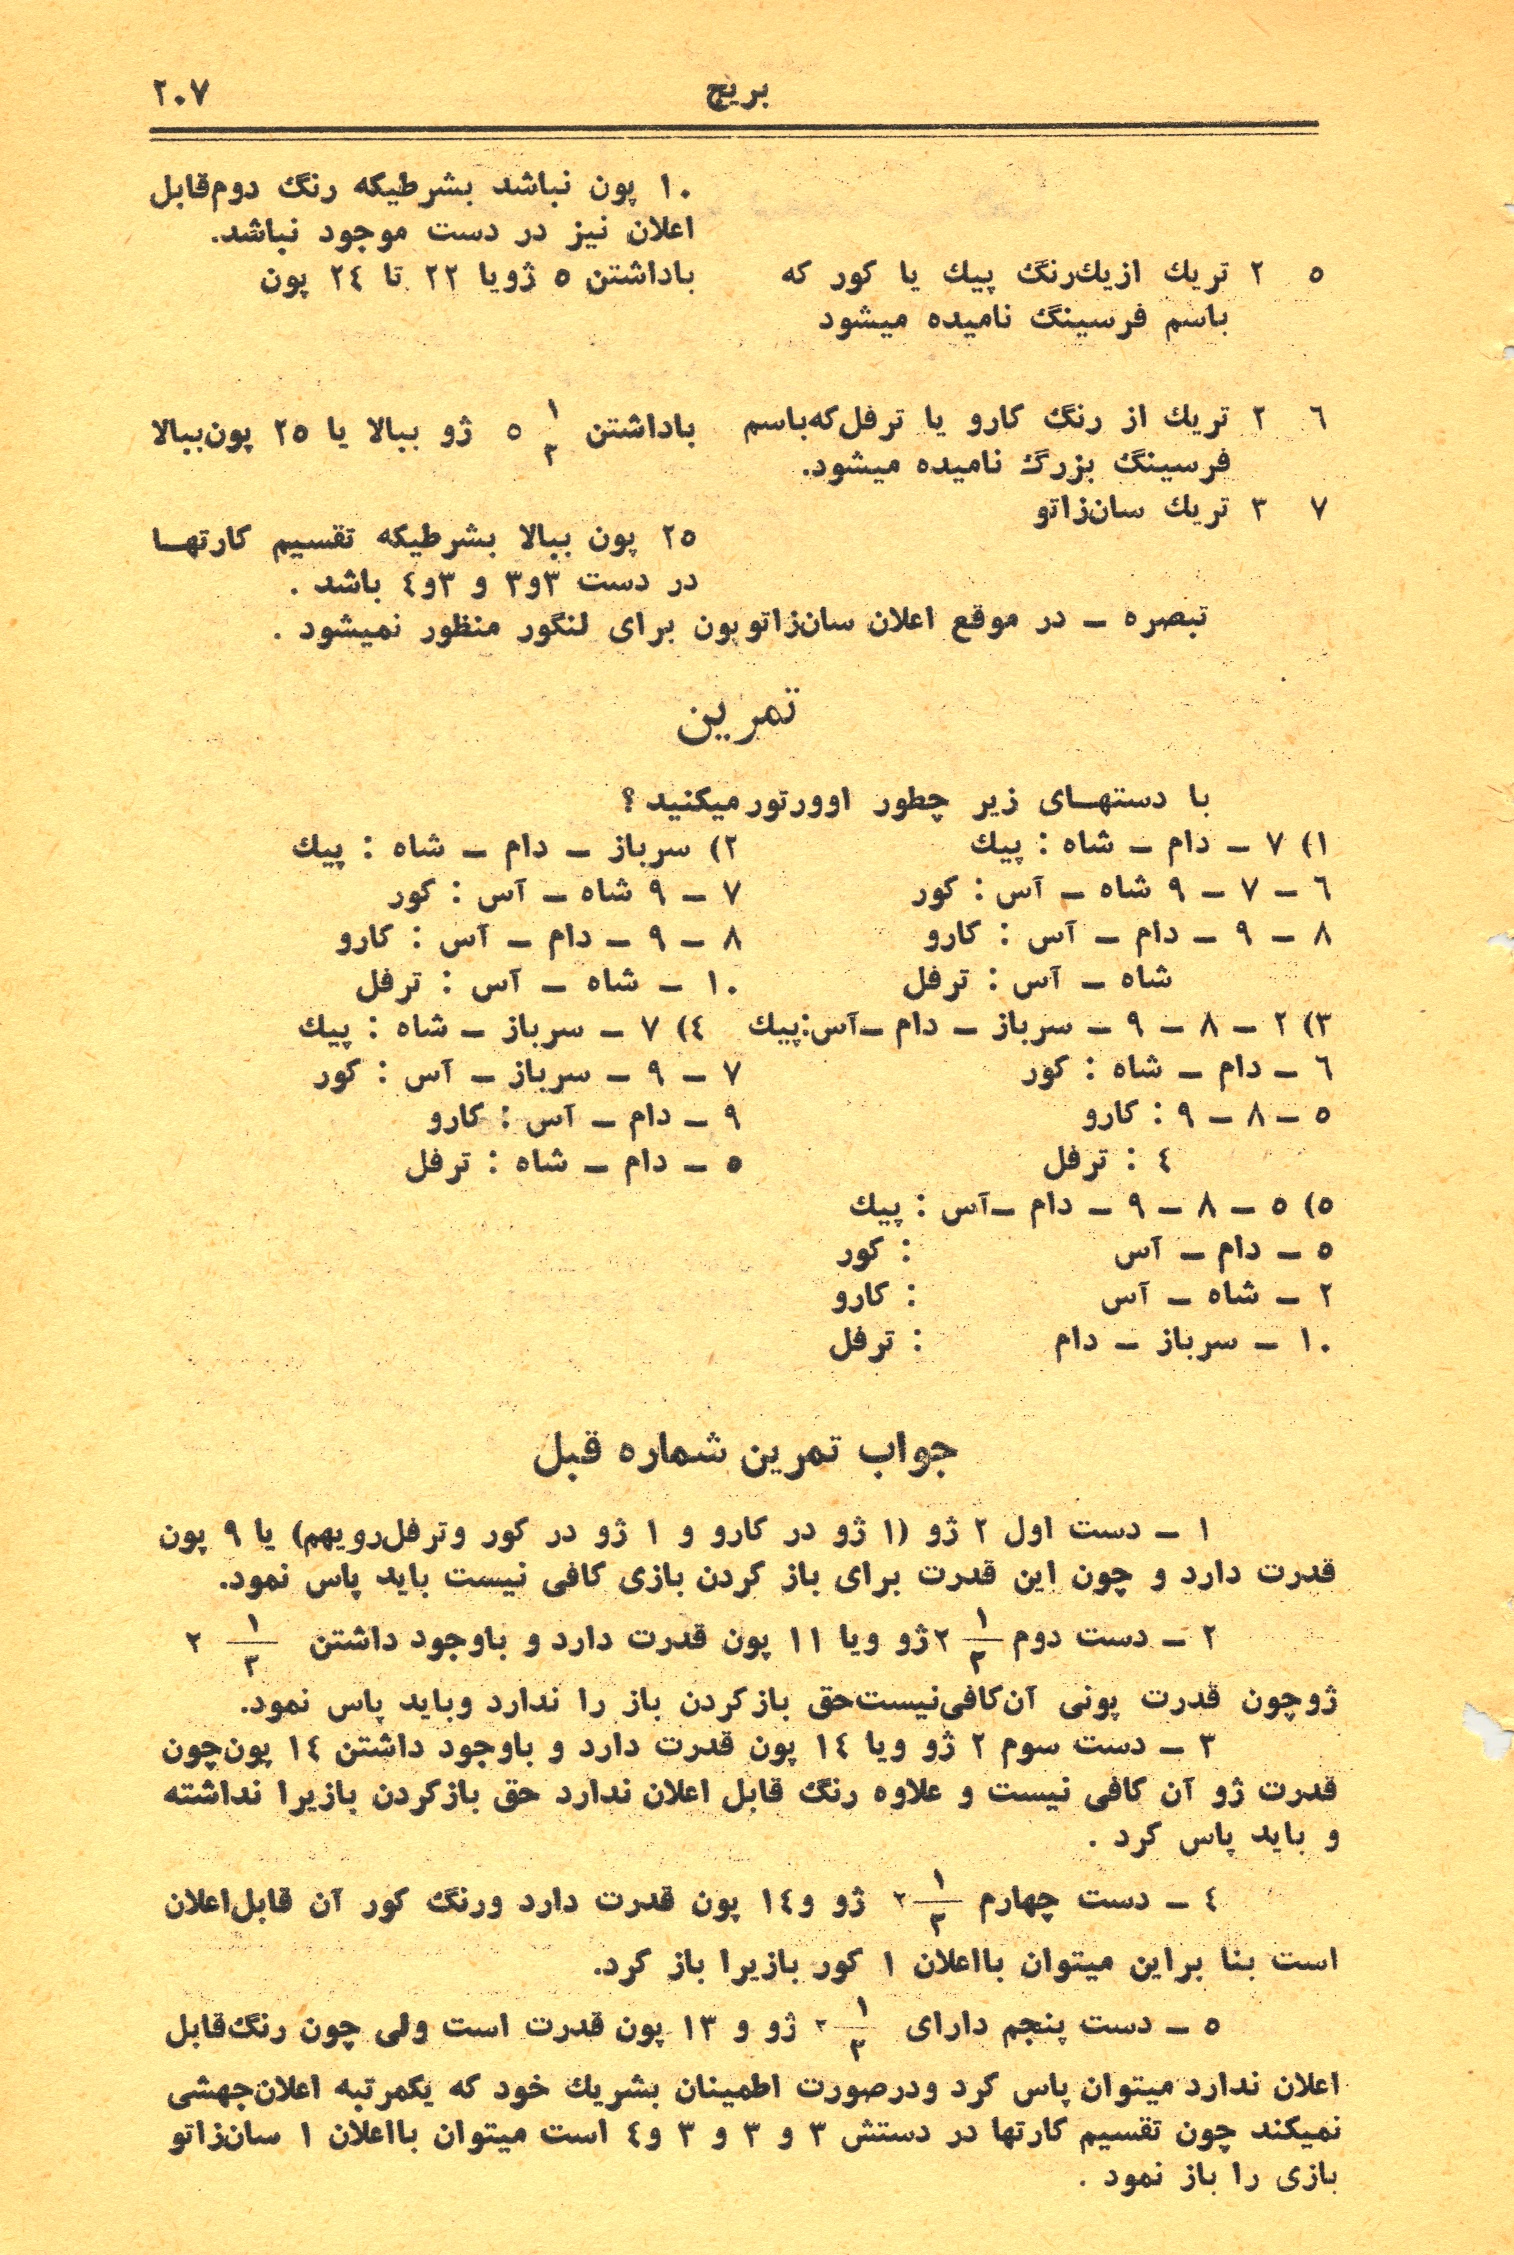 بریج
۲۰۷
۱۰ پون نباشد بشرطیکه رنگ دوم‌قابل
اعلان نیز در دست موجود نباشد.
۵ ۲ تریك ازیك‌رنگ پیك یا کور که
باسم فرسینگ نامیده میشود
باداشتن ۵ ژویا ۲۲ تا ۲٤ پون
٦ ۲ تریك از رنگ کارو یا ترفل‌که‌باسم
فرسینگ بزرگ نامیده میشود.
باداشتن ۱/۲ ۵ ژو ببالا یا ۲۵ پون‌ببالا
۷ ۳ تریك سان‌زاتو
۲۵ پون ببالا بشرطیکه تقسیم کارتهـا
در دست ۳و۳ و ۳و٤ باشد .
تبصره ـ در موقع اعلان سان‌زاتوپون برای لنگور منظور نمیشود .
تمرین
با دستهـای زیر چطور اوورتورمیکنید ؟
۱) ۷ ـ دام ـ شاه : پیك
٦ ـ ۷ ـ ۹ شاه ـ آس : کور
۸ ـ ۹ ـ دام ـ آس : کارو
شاه ـ آس : ترفل
۲) سرباز ـ دام ـ شاه : پیك
۷ ـ ۹ شاه ـ آس : کور
۸ ـ ۹ ـ دام ـ آس : کارو
۱۰ ـ شاه ـ آس : ترفل
۳) ۲ ـ ۸ ـ ۹ ـ سرباز ـ دام ـ آس:پیك
٦ ـ دام ـ شاه : کور
۵ ـ ۸ ـ ۹ : کارو
٤ : ترفل
٤) ۷ ـ سرباز ـ شاه : پیك
۷ ـ ۹ ـ سرباز ـ آس : کور
۹ ـ دام ـ آس : کارو
۵ ـ دام ـ شاه : ترفل
۵) ۵ ـ ۸ ـ ۹ ـ دام ـ آس : پیك
۵ ـ دام ـ آس : کور
۲ ـ شاه ـ آس : کارو
۱۰ ـ سرباز ـ دام : ترفل
جواب تمرین شماره قبل
۱ ـ دست اول ۲ ژو (۱ ژو در کارو و ۱ ژو در کور وترفل‌رویهم) یا ۹ پون
قدرت دارد و چون این قدرت برای باز کردن بازی کافی نیست باید پاس نمود.
۲ ـ دست دوم ۱/۲ ۲ژو ویا ۱۱ پون قدرت دارد و باوجود داشتن ۱/۲ ۲
ژوچون قدرت پونی آن‌کافی‌نیست‌حق بازکردن باز را ندارد وباید پاس نمود.
۳ ـ دست سوم ۲ ژو ویا ۱٤ پون قدرت دارد و باوجود داشتن ۱٤ پون‌چون
قدرت ژو آن کافی نیست و علاوه رنگ قابل اعلان ندارد حق بازکردن بازیرا نداشته
و باید پاس کرد .
٤ ـ دست چهارم ۱/۲ ۲ ژو و۱٤ پون قدرت دارد ورنگ کور آن قابل‌اعلان
است بنا براین میتوان بااعلان ۱ کور بازیرا باز کرد.
۵ ـ دست پنجم دارای ۱/۲ ۲ ژو و ۱۳ پون قدرت است ولی چون رنگ‌قابل
اعلان ندارد میتوان پاس کرد ودرصورت اطمینان بشریك خود که یکمرتبه اعلان‌جهشی
نمیکند چون تقسیم کارتها در دستش ۳ و ۳ و ۳ و٤ است میتوان بااعلان ۱ سان‌زاتو
بازی را باز نمود .